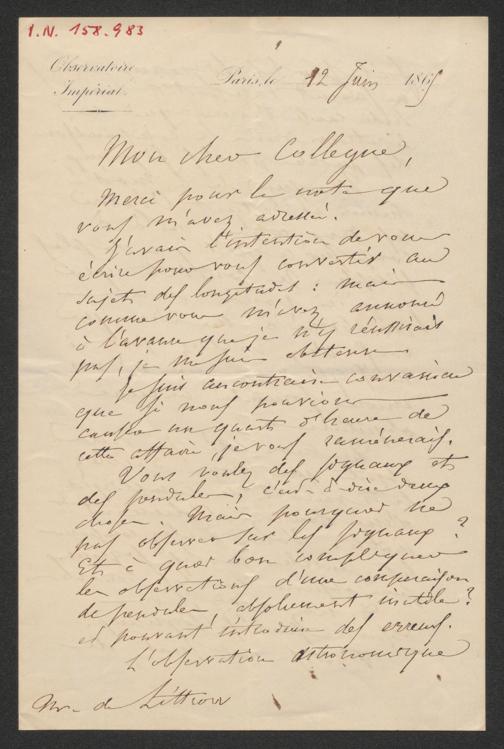 I.N. 158.983
Observatoire
Impérial
Paris, le 12 Juin 1865
Mon cher Collègue,
Merci pour la note que
vous m'avez adressée.
J'avais l'intention de vous
écrire pour vous convertir au
sujet des longitudes : mais
comme vous m'avez annoncé
à l'avance que je n'y réussirais
pas, je me suis abstenu.
Je suis au contraire convaincu
que si nous pouvions
causer un quart d'heure de
cette affaire je vous ramènerais.
Vous voulez des signaux et
des pendules, c'est à dire deux
choses. Mais pourquoi ne
pas observer sur les signaux ?
Et à quoi bon compliquer
les observations d'une comparaison
de pendules, absolument inutile ?
et pouvant introduire des erreurs.
L'observation astronomique
Mr. de Littrow